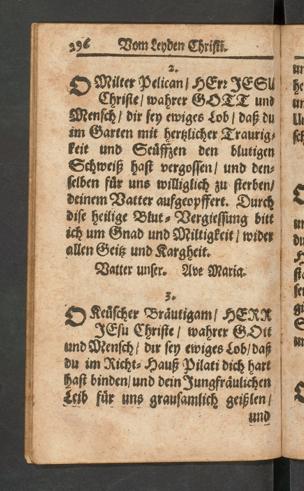 296 Vom Leyden Christi.
2.
O Milter Pelican / HErr JESU
Christe / wahrer GOTT und
Mensch / dir sey ewiges Lob / daß du
im Garten mit hertzlicher Traurig-
keit und Seüffzen den blutigen
Schweiß hast vergossen / und den-
selben für uns williglich zu sterben /
deinem Vatter aufgeopffert. Durch
dise heilige Blut-Vergiessung bitt
ich um Gnad und Miltigkeit / wider
allen Geitz und Kargheit.
Vatter unser. Ave Maria.
3.
O Keüscher Bräutigam / HERR
JEsu Christe / wahrer GOtt
und Mensch / dir sey ewiges Lob / daß
du im Richt-Hauß Pilati dich hart
hast binden / und dein Jungfräulichen
Leib für uns grausamlich geißlen /
und